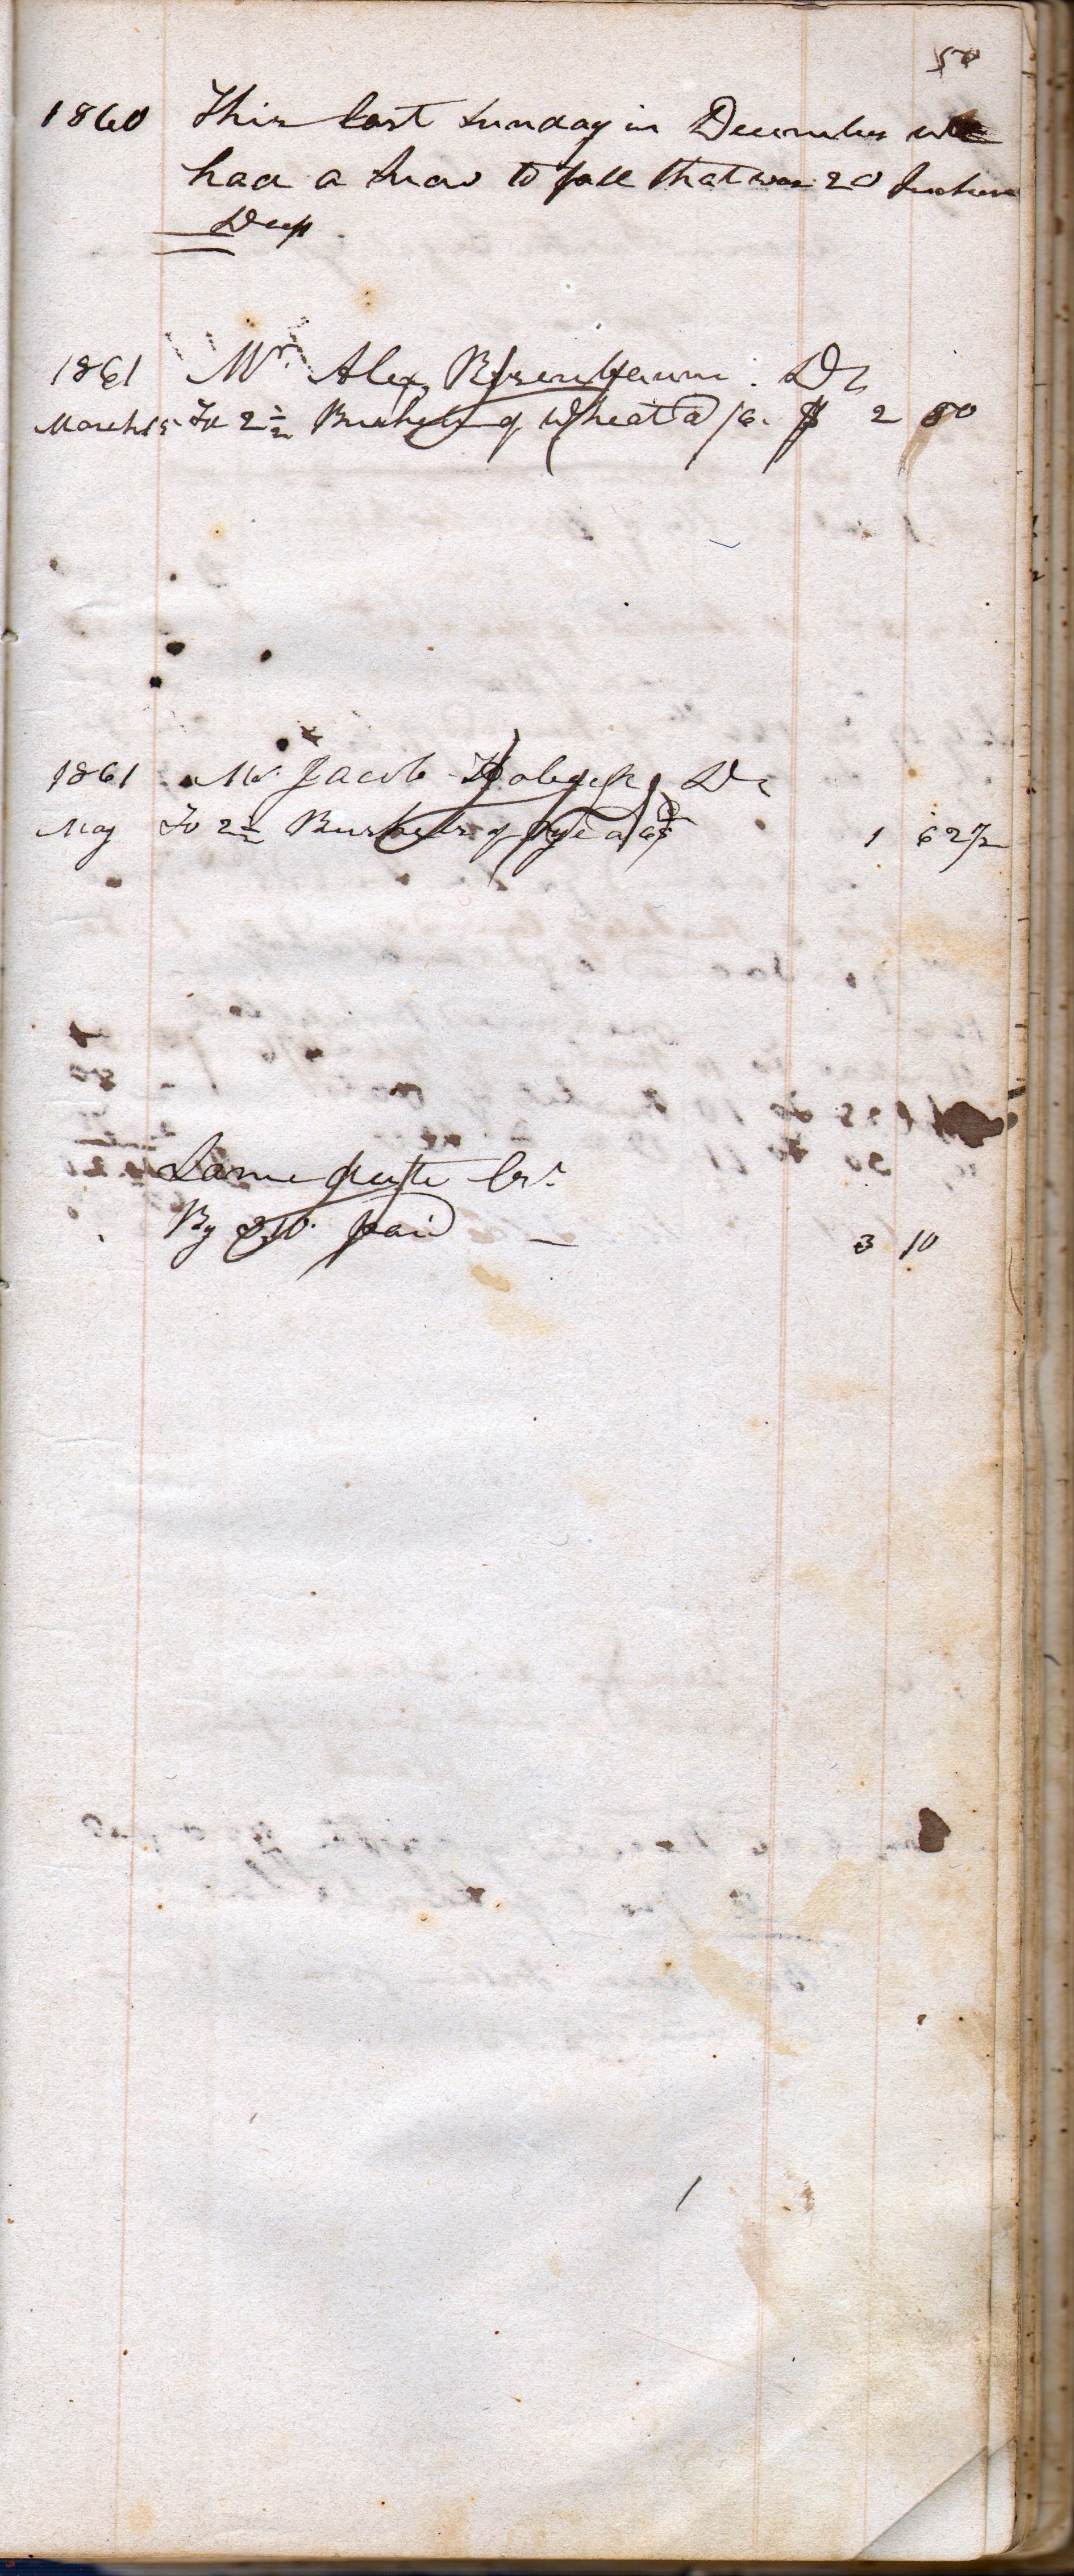 50
1860 This last Sunday in December we
had a Snow to fall that was 20 Inches
Deep
1861 Mr. Alex Rosenbaum. Dr
March 15 To 2 1/2 Bushels of Wheat a /6. $ 2 50
1861 Mr Jacob Dr
May To 2 1/2 Bushels of Rye a 65 1 62 1/2
Same Cr.
By paid — 3 10